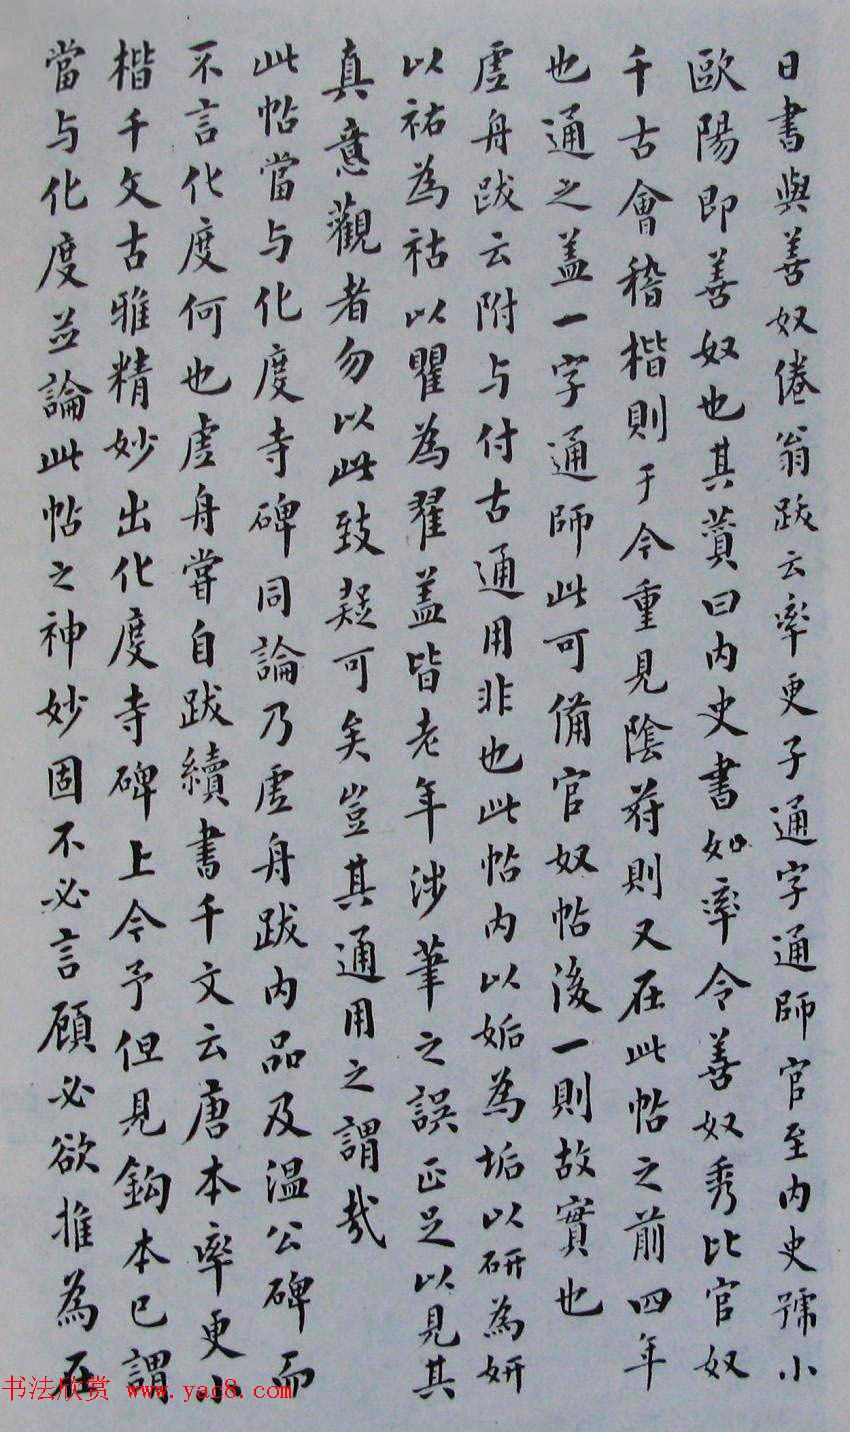 日書與善奴倦翁跋云率更子通字通師官至内史號小
歐陽即善奴也其蕒曰内史書如率令善奴秀比官奴
千古會稽楷則于今重見陰符則又在此帖之前四年
也通之盖一字通師此可備官奴帖後一則故實也
虛舟跋云附与付古通用非也此帖内以姤為垢以研為妍
以祐為祜以瞿為翟盖皆老年涉筆之誤正足以見其
真意觀者勿以此致疑可矣豈其通用之謂哉
此帖當与化度寺碑同論乃虛舟跋内品及温公碑而
不言化度何也虛舟嘗自跋續書千文云唐本率更小
楷千文古雅精妙出化度寺碑上今予但見鈎本已謂
當与化度並論此帖之神妙固不必言顧必欲推為在
书法欣赏 www.yac8.com